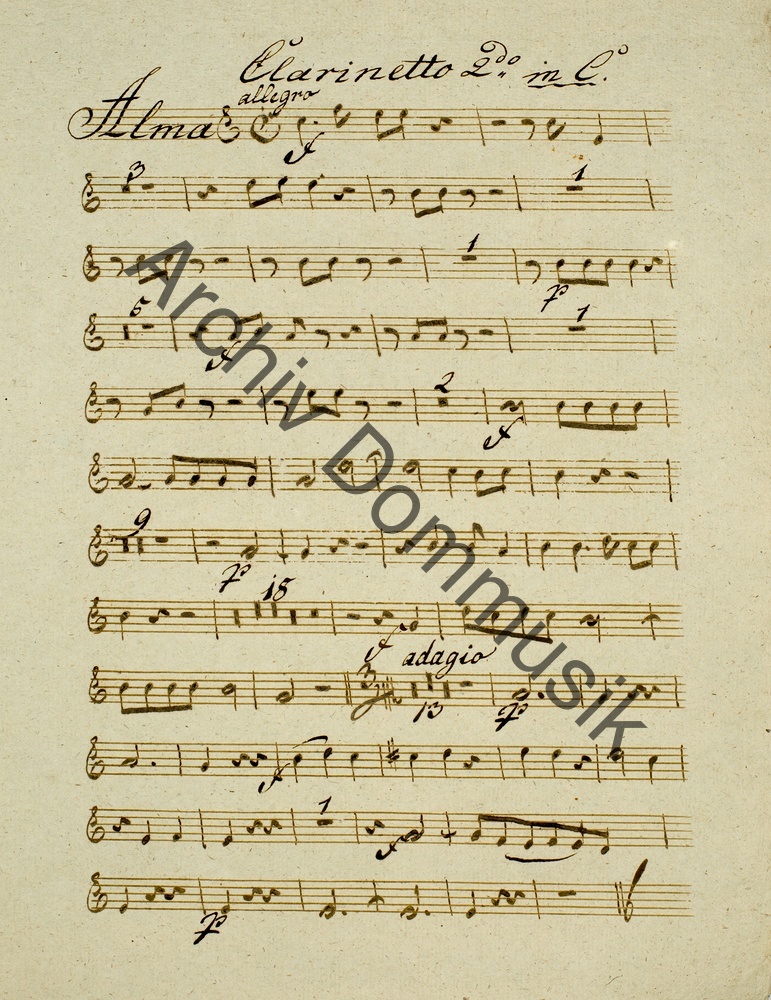 Clarinetto 2do in C.
allegro
Alma
f
3
1
1
p
5
f
1
2
f
9
p
18
f
adagio
3
13
p
f
1
f
p
Archiv Dommusik